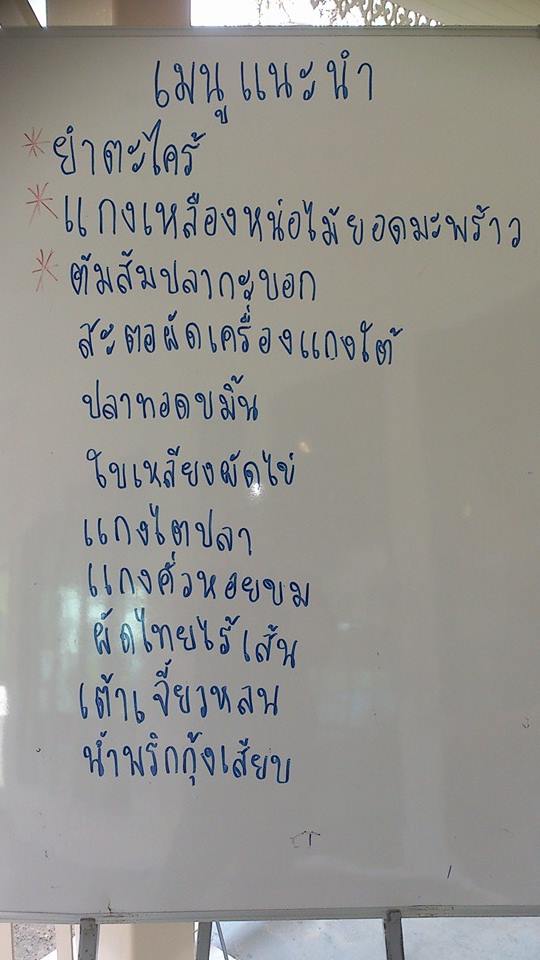 เมนูแนะนำ
* ยำตะไคร้
* แกงเหลืองหน่อไม้ยอดมะพร้าว
* ต้มส้มปลากระบอก
สะตอผัดเครื่องแกงใต้
ปลาทอดขมิ้น
ใบเหลียงผัดไข่
แกงไตปลา
แกงคั่วหอยขม
ผัดไทยไร้เส้น
เต้าเจี้ยวหลน
น้ำพริกกุ้งเสียบ